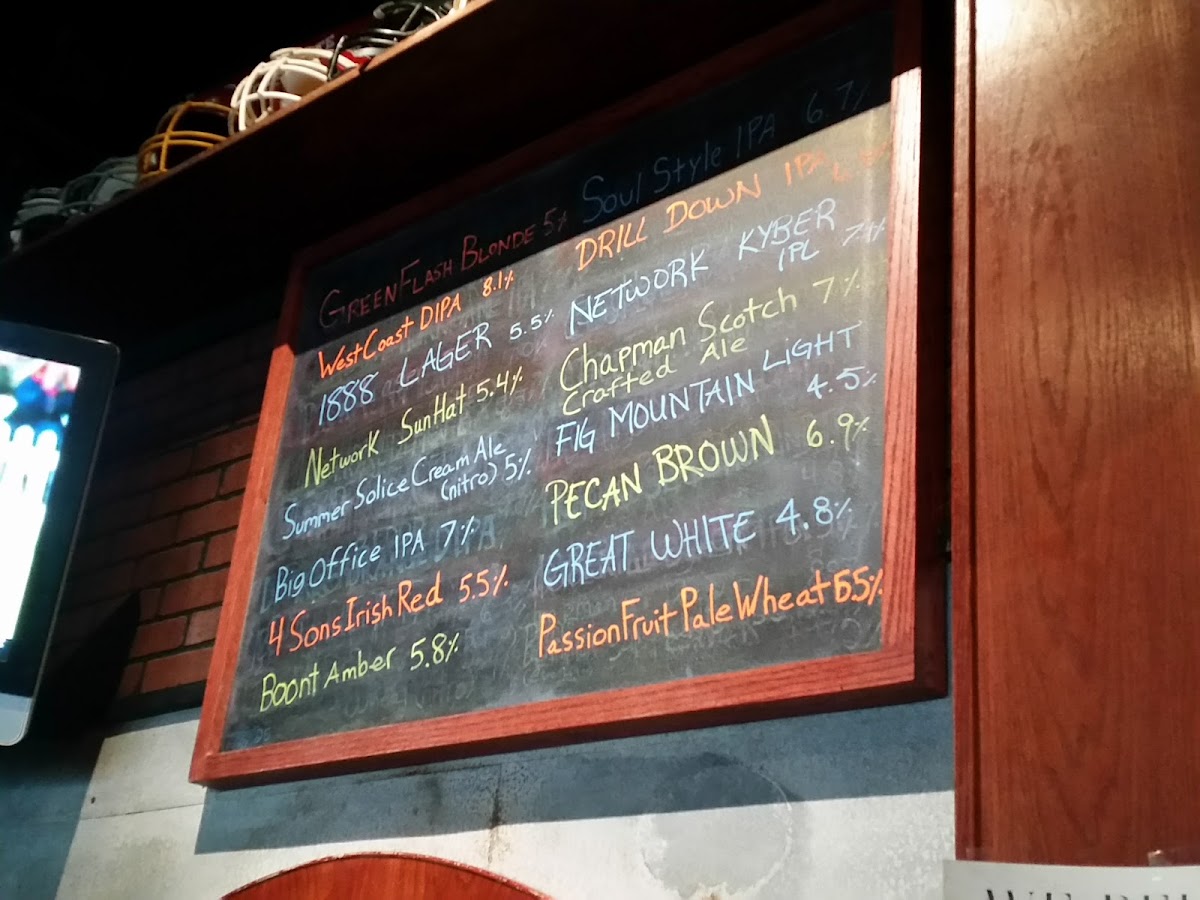 GreenFlash Blonde 5%
WestCoast DIPA 8.1%
1888 LAGER 5.5%
Network SunHat 5.4%
Summer Solice Cream Ale
(nitro) 5%
Big Office IPA 7%
4 Sons Irish Red 5.5%
Boont Amber 5.8%
Soul Style IPA 6.7%
DRILL DOWN IPA
NETWORK KYBER
IPL
Chapman Scotch 7%
Crafted Ale
FIG MOUNTAIN LIGHT
4.5%
PECAN BROWN 6.9%
GREAT WHITE 4.8%
PassionFruit Pale Wheat 5.5%